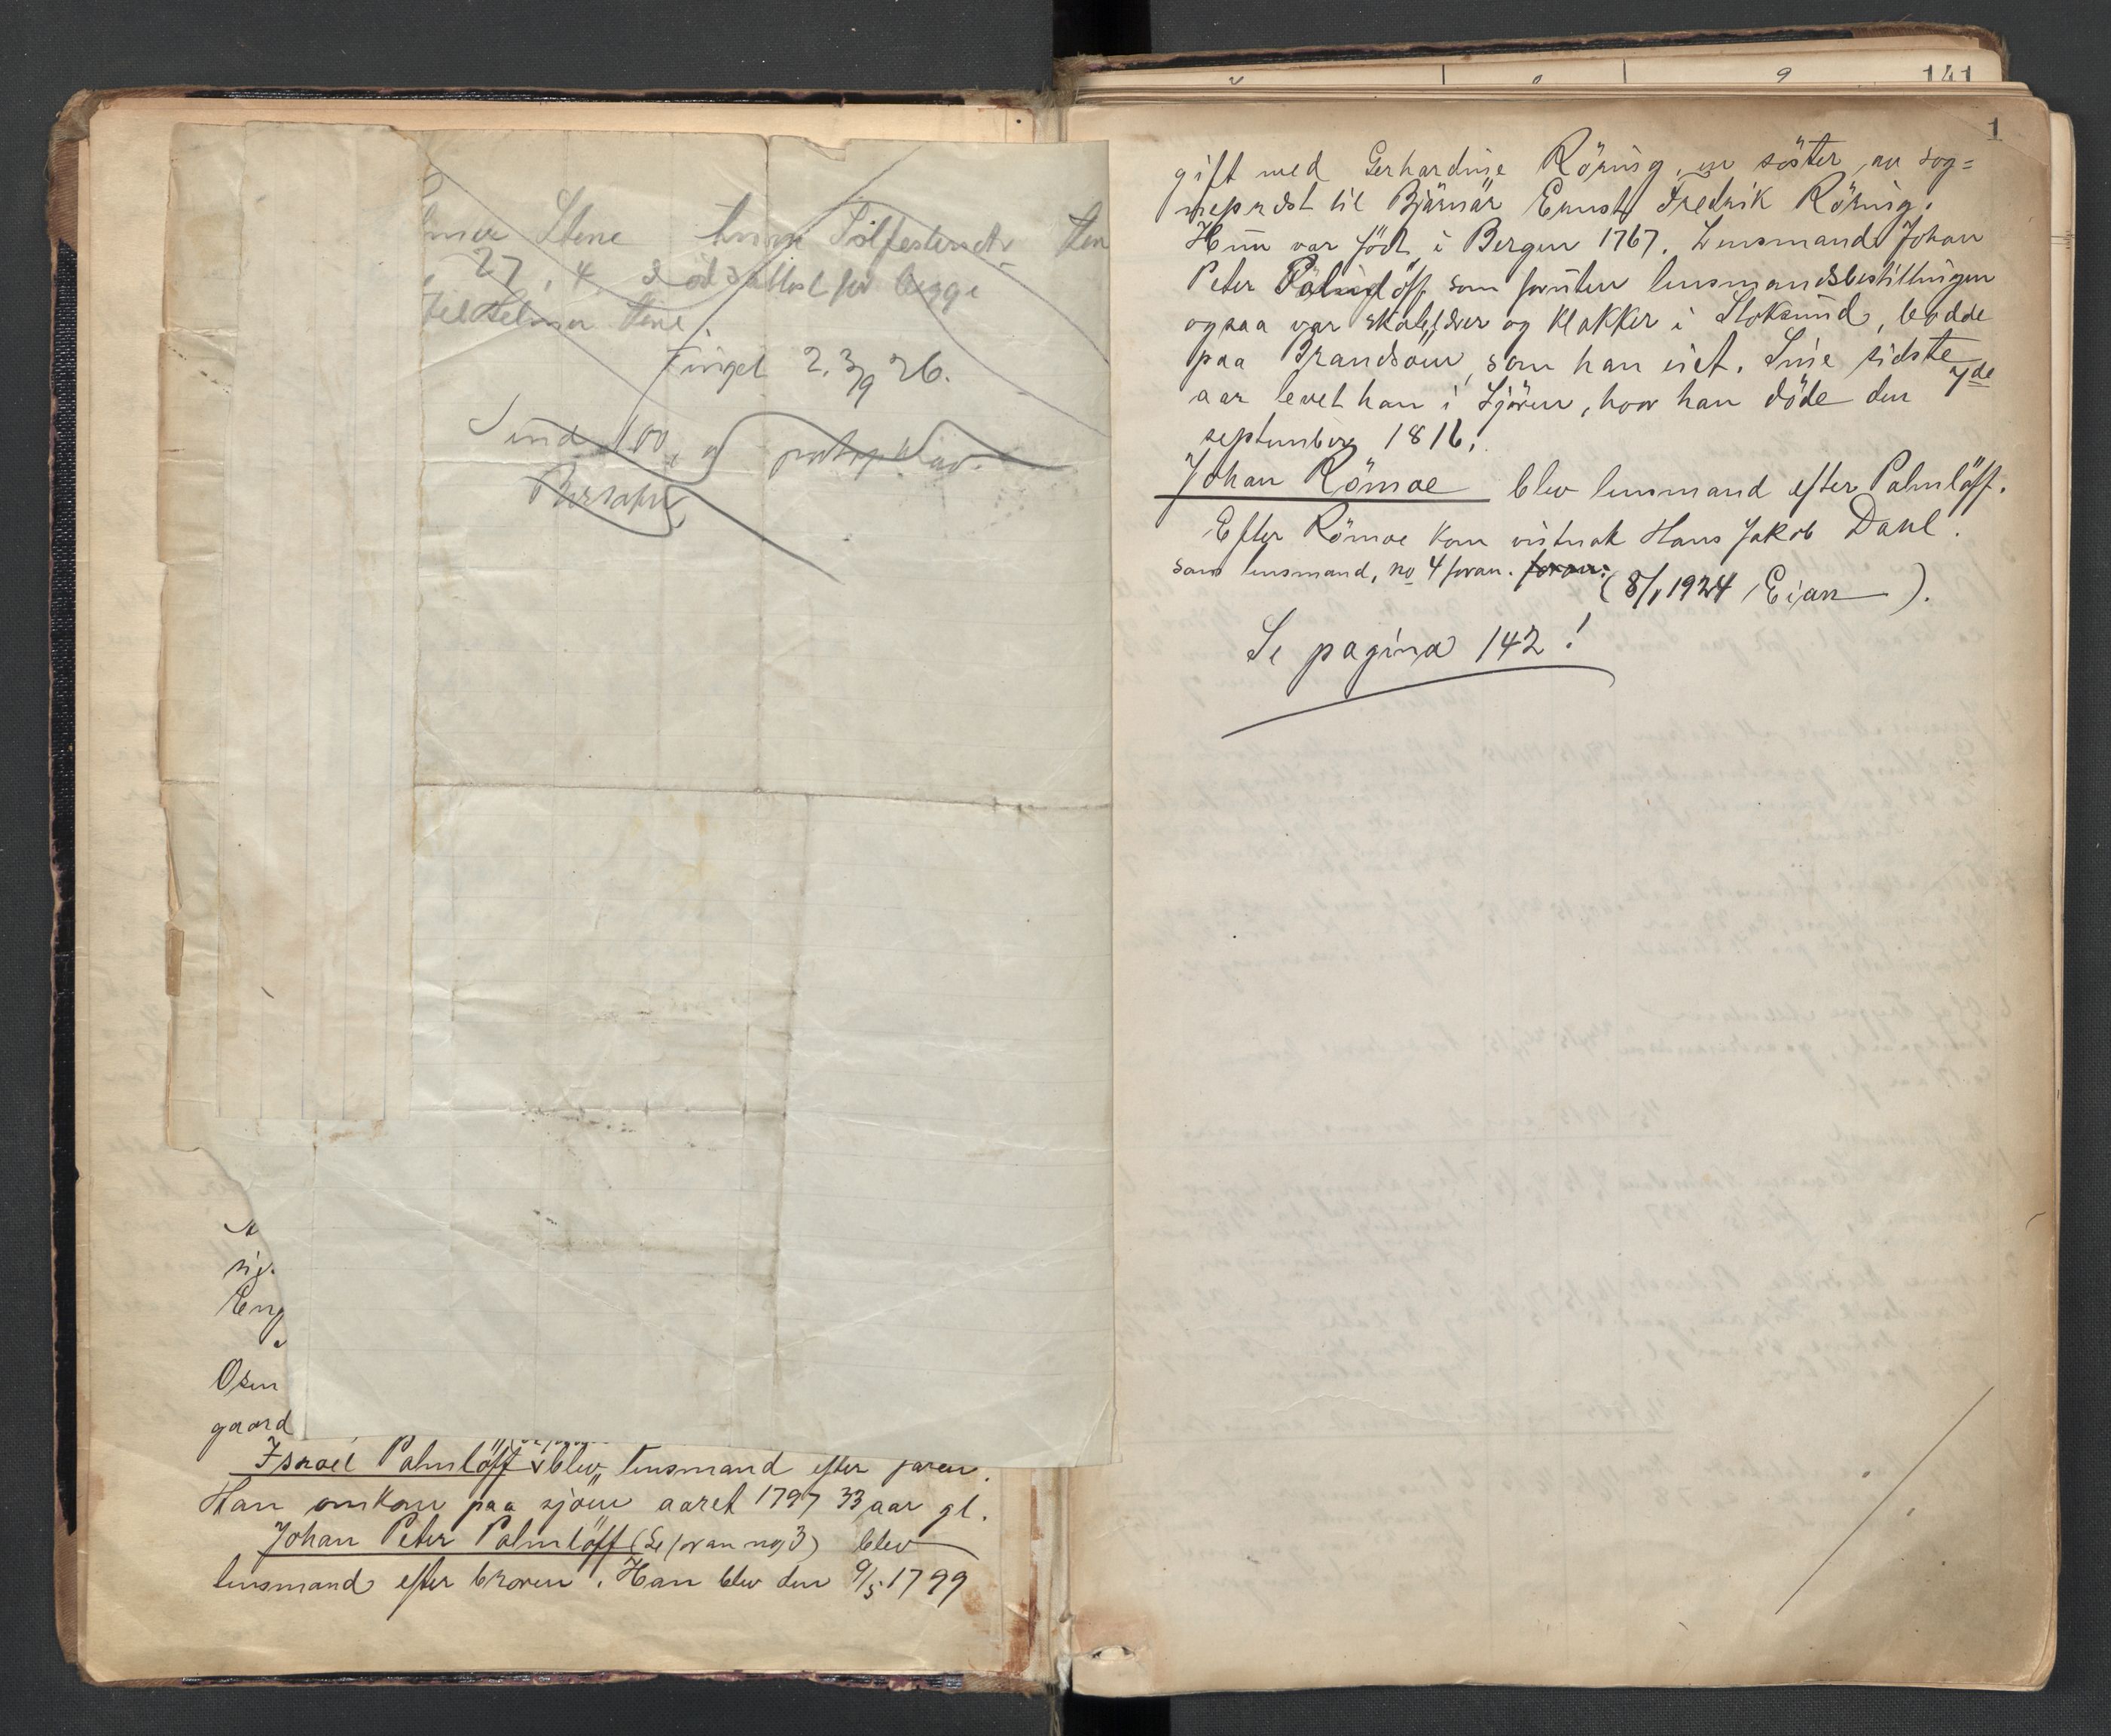 Stene
27, 4 dödsattest for begge
Stene.
Tinget 2. 3/9 26.
Send
Eng
Osen
gaard
Israel Palmlöff blev lensmand efter faren.
Han omkom paa sjöen aaret 1797 33 aar gl.
Johan Peter Palmlöff (Se foran no 3) blev
lensmand efter broren. Han blev den 9/5 1799
141
1
gift med Gerhardine Röring, en söster av sog=
neprest til Bjärnär Ernst Fredrik Röring.
Hun var född i Bergen 1767. Lensmand Johan
Peter Palmlöff som foruten lensmandsbestillingen
ogsaa var skolelärer og klokker i Stoksund, bodde
paa Brandsöen, som han eiet. Sine sidste
aar levet han i Sjören, hvor han döde den 7de
september 1816.
Johan Römoe blev lensmand efter Palmlöff.
Efter Römoe kom vistnok Hans Jakob Dahl.
som lensmand, no 4 foran. foran:
(8/1 1924 Eian).
Se pagina 142!